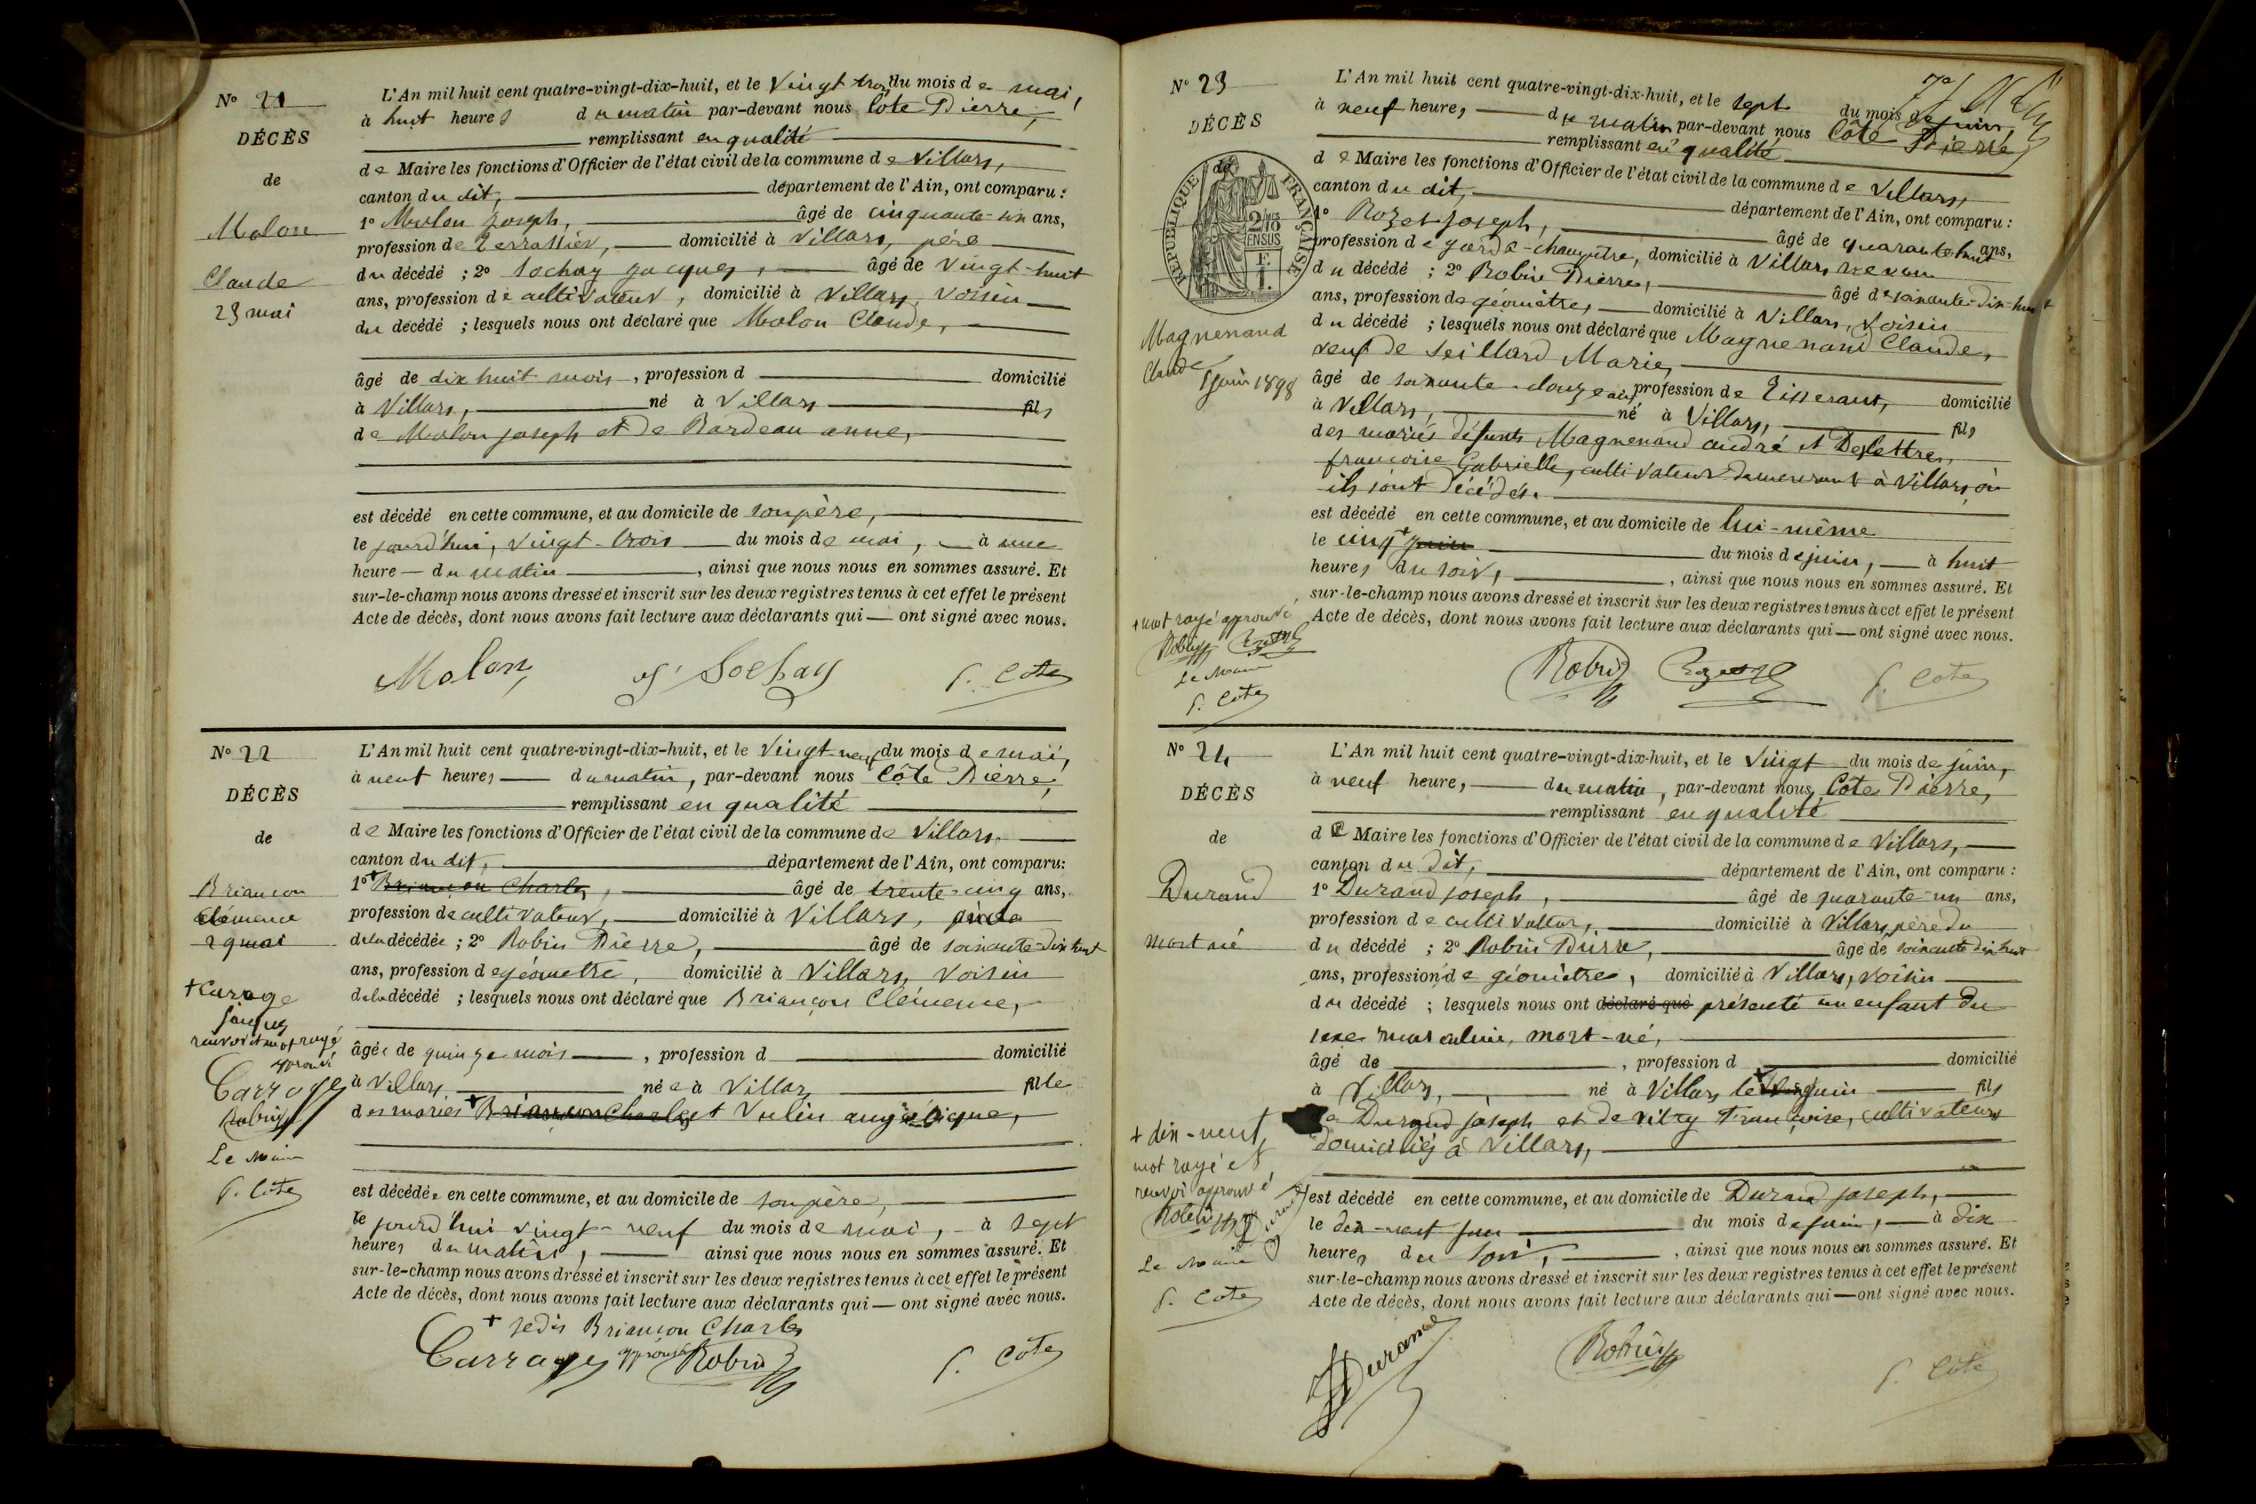 N° 21
DÉCÈS
de
Molon
Claude
23 mai
L'An mil huit cent quatre-vingt-dix-huit, et le vingt trois du mois de mai,
à huit heures du matin par-devant nous Côte Pierre,
remplissant en qualité
de Maire les fonctions d'Officier de l'état civil de la commune de Villars,
canton du dit, département de l'Ain, ont comparu :
1° Molon Joseph, âgé de cinquante-six ans,
profession de Terrassier, domicilié à Villars, père
du décédé ; 2° Sochay Jacques, âgé de vingt-huit
ans, profession de cultivateur, domicilié à Villars, voisin
du décédé ; lesquels nous ont déclaré que Molon Claude,
âgé de dix huit mois, profession d domicilié
à Villars, né à Villars fils
de Molon Joseph et de Bardeau anne,
est décédé en cette commune, et au domicile de son père,
le jourd'hui, vingt-trois du mois de mai, à une
heure du matin, ainsi que nous nous en sommes assuré. Et
sur-le-champ nous avons dressé et inscrit sur les deux registres tenus à cet effet le présent
Acte de décès, dont nous avons fait lecture aux déclarants qui ont signé avec nous.
Molon J Sochay P. Cote
N° 22
DÉCÈS
de
Briançon
Clémence
29 mai
+ Carage
Jacques
renvoi et mot rayé
approuvé
Carrage
Robin
Le Maire
P. Cote
L'An mil huit cent quatre-vingt-dix-huit, et le vingt-neuf du mois de mai,
à neuf heures du matin, par-devant nous Côte Pierre,
remplissant en qualité
de Maire les fonctions d'Officier de l'état civil de la commune de Villars,
canton du dit, département de l'Ain, ont comparu :
1° + Briançon Charles, âgé de trente-cinq ans,
profession de cultivateur, domicilié à Villars,
de la décédée ; 2° Robin Pierre, âgé de soixante-dix huit
ans, profession de géomètre, domicilié à Villars, voisin
de la décédé ; lesquels nous ont déclaré que Briançon Clémence,
âgée de quinze mois, profession d domicilié
à Villars née à Villars fille
des mariés + Briançon Charles et Vulin angélique,
est décédée en cette commune, et au domicile de son père,
le jourd'hui vingt-neuf du mois de mai, à sept
heures du matin, ainsi que nous nous en sommes assuré. Et
sur-le-champ nous avons dressé et inscrit sur les deux registres tenus à cet effet le présent
Acte de décès, dont nous avons fait lecture aux déclarants qui ont signé avec nous.
+ Briançon Charles
Carrage approuvé Robin P. Cote
N° 23
DÉCÈS
de
RÉPUBLIQUE FRANÇAISE
2/10
EN SUS
Magnenand
Claude
5 juin 1898
+ mot rayé approuvé
Robin Rozet
Le Maire
P. Cote
L'An mil huit cent quatre-vingt-dix-huit, et le sept du mois de juin,
à neuf heures du matin par-devant nous Côte Pierre,
remplissant en qualité
de Maire les fonctions d'Officier de l'état civil de la commune de Villars,
canton du dit, département de l'Ain, ont comparu :
1° Rozet Joseph, âgé de quarante huit ans,
profession de garde-champêtre, domicilié à Villars
du décédé ; 2° Robin Pierre, âgé de soixante-dix-huit
ans, profession de géomètre, domicilié à Villars, voisin
du décédé ; lesquels nous ont déclaré que Magnenand Claude,
veuf de Seillard Marie,
âgé de soixante-douze ans, profession de Tisserant, domicilié
à Villars, né à Villars, fils
des mariés défunts Magnenand andré et Deslettres
françoise Gabrielle, cultivateurs demeurant à Villars où
ils sont décédés.
est décédé en cette commune, et au domicile de lui-même
le cinq + juin du mois de juin, à huit
heures du soir, ainsi que nous nous en sommes assuré. Et
sur-le-champ nous avons dressé et inscrit sur les deux registres tenus à cet effet le présent
Acte de décès, dont nous avons fait lecture aux déclarants qui ont signé avec nous.
Robin Rozet P. Cote
N° 24
DÉCÈS
de
Durand
mort né
+ dix-neuf,
mot rayé et
renvoi approuvé
Robin Durand
Le Maire
P. Cote
L'An mil huit cent quatre-vingt-dix-huit, et le vingt du mois de juin,
à neuf heures du matin, par-devant nous Côte Pierre,
remplissant en qualité
de Maire les fonctions d'Officier de l'état civil de la commune de Villars,
canton du dit, département de l'Ain, ont comparu :
1° Durand Joseph, âgé de quarante-un ans,
profession de cultivateur, domicilié à Villars, père du
du décédé ; 2° Robin Pierre, âgé de soixante dix huit
ans, profession de géomètre, domicilié à Villars, voisin
du décédé ; lesquels nous ont déclaré que présenté un enfant du
sexe masculin, mort-né,
âgé de, profession d domicilié
à Villars, né à Villars le + juin fils
de Durand Joseph et de Vitry Françoise, cultivateurs
domiciliés à Villars,
est décédé en cette commune, et au domicile de Durand Joseph,
le dix-neuf juin du mois de juin, à dix
heures du soir, ainsi que nous nous en sommes assuré. Et
sur-le-champ nous avons dressé et inscrit sur les deux registres tenus à cet effet le présent
Acte de décès, dont nous avons fait lecture aux déclarants qui ont signé avec nous.
Durand Robin P. Cote